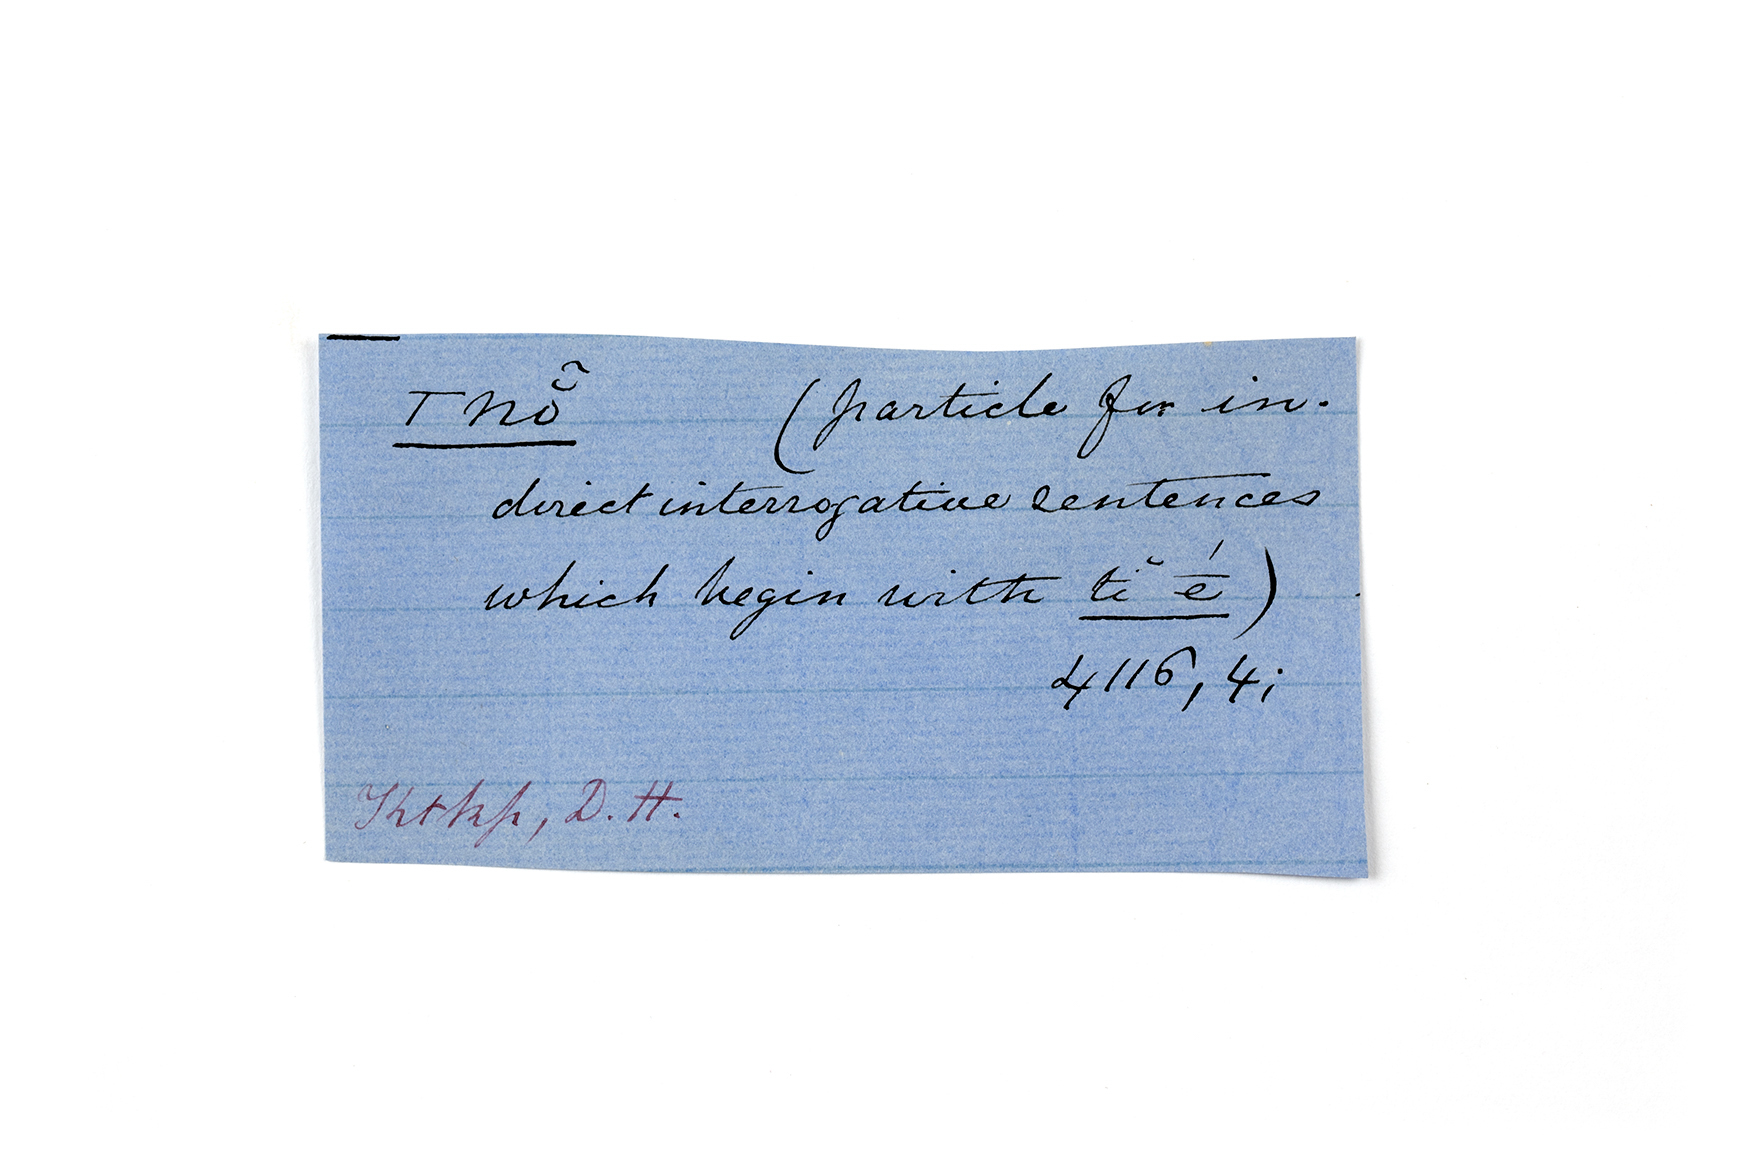 T nŏ̃ (particle for in-
direct interrogative sentences
which begin with ti ̆ é̄)
4116, 4;
D. H.